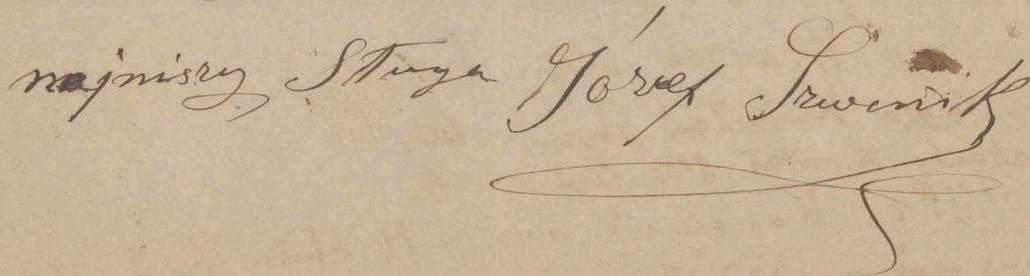 najniszy Sługa Józef Szwenik